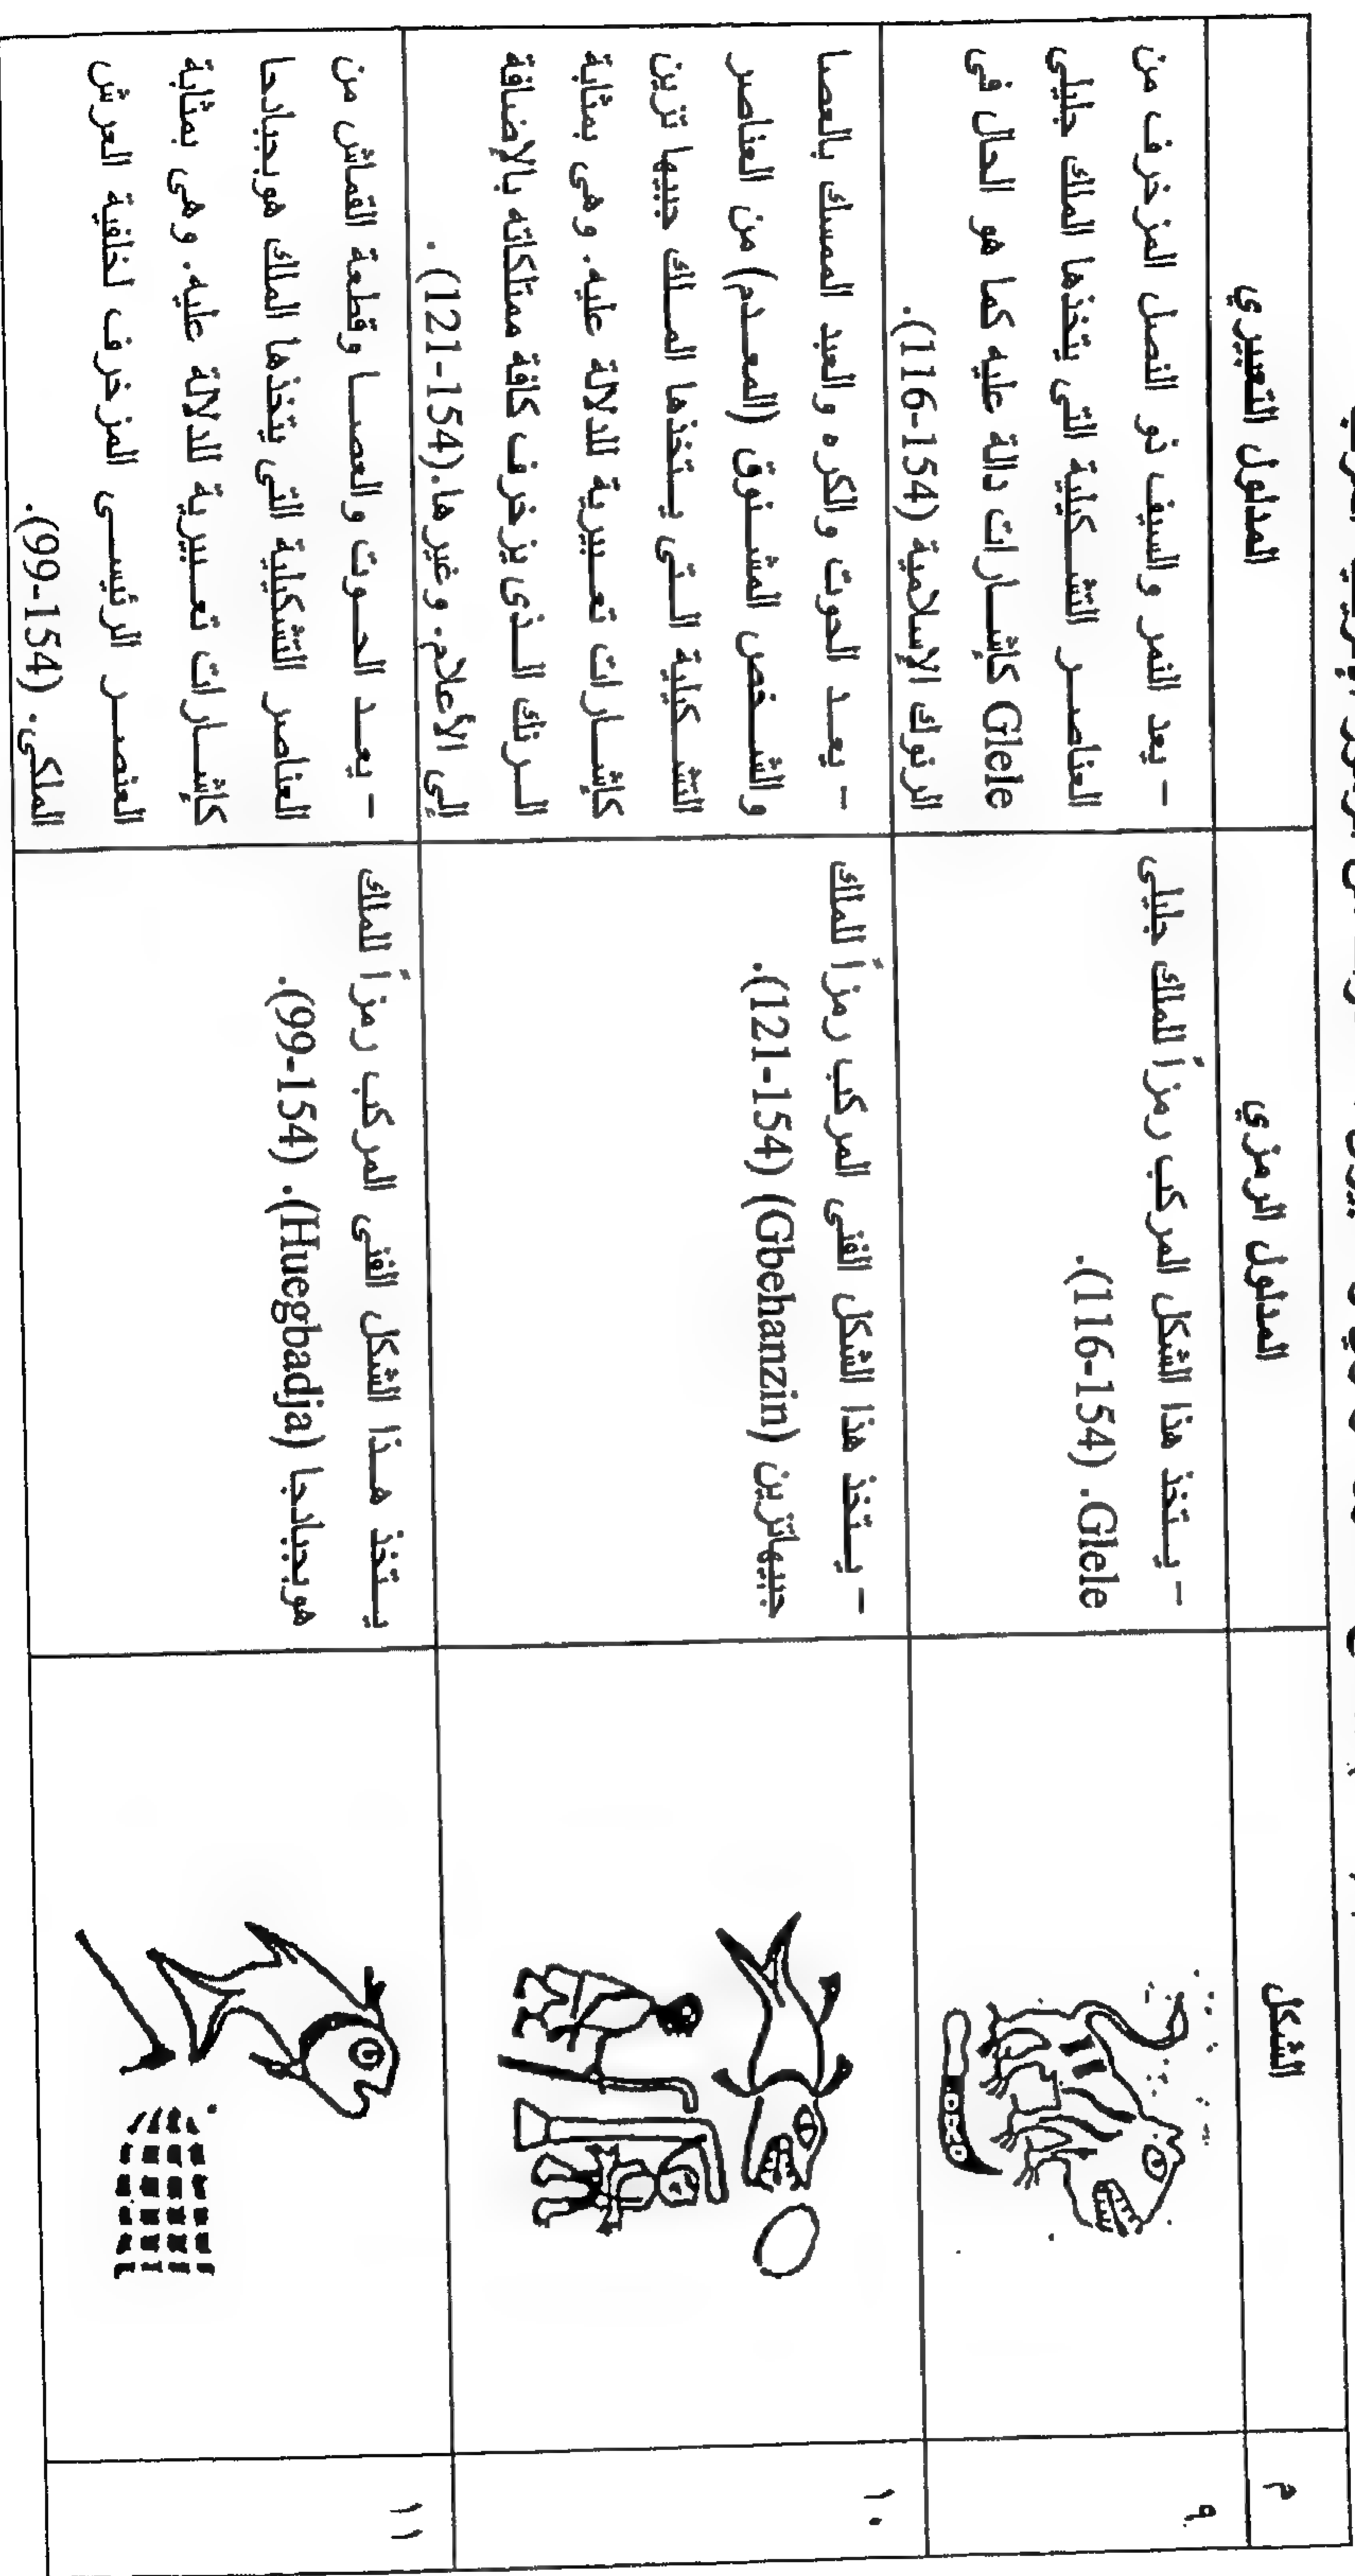 م
الشكل
المدلول الرمزي
المدلول التعبيري
٩
- يــتخذ هذا الشكل المركب رمزاً للملك جليلى
Glele. (154-116).
- يعد النمر والسيف ذو النصل المزخرف من
العناصــر التشــكيلية التى يتخذها الملك جليلى
Glele كإشــارات دالة عليه كما هو الحال فى
الرنوك الإسلامية (154-116).
١٠
- يــتخذ هذا الشكل الفنى المركب رمزاً للملك
جبيهانزين (Gbehanzin) (154-121).
- يعــد الحوت والكره والعبد الممسك بالعصا
والشــخص المشــنوق (المعــدم) من العناصر
التشــكيلية الــتى يــتخذها المــلك جبيها نزين
كإشــارات تعــبيرية للدلالة عليه. وهى بمثابة
الــرنك الــذى يزخرف كافة ممتلكاته بالإضافة
إلى الأعلام. وغيرها.(154-121) .
١١
يــتخذ هــذا الشكل الفنى المركب رمزاً للملك
هويجبادجا (Huegbadja). (154-99).
- يعــد الحــوت والعصــا وقطعة القماش من
العناصر التشكيلية التى يتخذها الملك هويجبادجا
كإشــارات تعــبيرية للدلالة عليه. وهى بمثابة
العنصــر الرئيســى المزخرف لخلفية العرش
الملكى. (154-99).